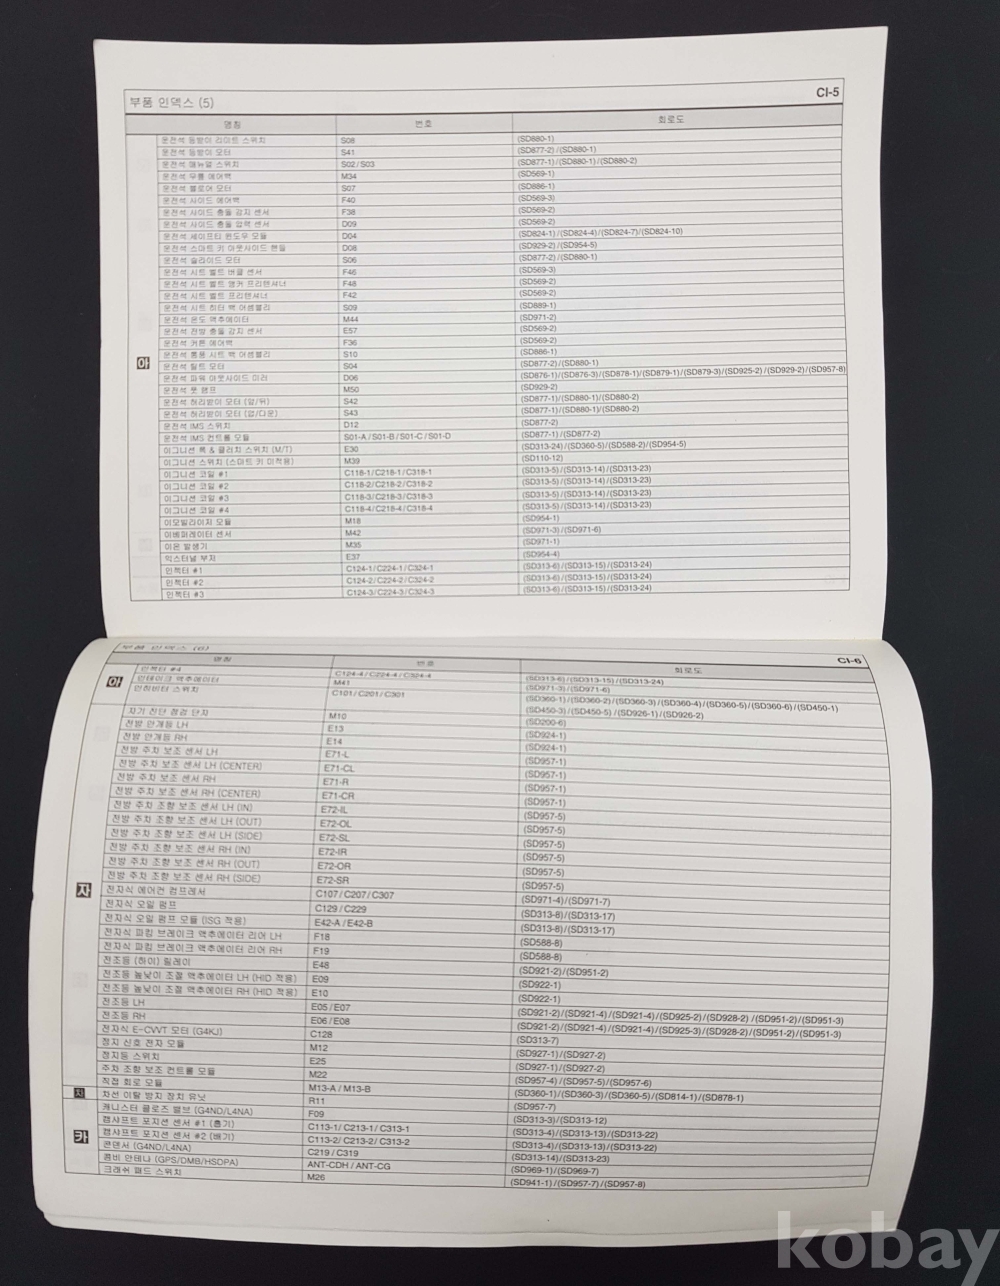 부품 인덱스 (5) CI-5
명칭 번호 회로도
운전석 등받이 리미트 스위치 S08 (SD880-1)
운전석 등받이 모터 S41 (SD877-2)/(SD880-1)
운전석 매뉴얼 스위치 S02/S03 (SD877-1)/(SD880-1)/(SD880-2)
운전석 무릎 에어백 M34 (SD569-1)
운전석 블로어 모터 S07 (SD886-1)
운전석 사이드 에어백 F40 (SD569-3)
운전석 사이드 충돌 감지 센서 F38 (SD569-2)
운전석 사이드 충돌 압력 센서 D09 (SD569-2)
운전석 세이프티 윈도우 모듈 D04 (SD824-1)/(SD824-4)/(SD824-7)/(SD824-10)
운전석 스마트 키 아웃사이드 핸들 D08 (SD929-2)/(SD954-5)
운전석 슬라이드 모터 S06 (SD877-2)/(SD880-1)
운전석 시트 벨트 버클 센서 F46 (SD569-3)
운전석 시트 벨트 앵커 프리텐셔너 F48 (SD569-2)
운전석 시트 벨트 프리텐셔너 F42 (SD569-2)
운전석 시트 히터 백 어셈블리 S09 (SD889-1)
운전석 온도 액추에이터 M44 (SD971-2)
운전석 전방 충돌 감지 센서 E57 (SD569-2)
운전석 커튼 에어백 F36 (SD569-2)
운전석 통풍 시트 백 어셈블리 S10 (SD886-1)
아
운전석 틸트 모터 S04 (SD877-2)/(SD880-1)
운전석 파워 아웃사이드 미러 D06 (SD876-1)/(SD876-3)/(SD878-1)/(SD879-1)/(SD879-3)/(SD925-2)/(SD929-2)/(SD957-8)
운전석 풋 램프 M50 (SD929-2)
운전석 허리받이 모터 (앞/뒤) S42 (SD877-1)/(SD880-1)/(SD880-2)
운전석 허리받이 모터 (업/다운) S43 (SD877-1)/(SD880-1)/(SD880-2)
운전석 IMS 스위치 D12 (SD877-2)
운전석 IMS 컨트롤 모듈 S01-A/S01-B/S01-C/S01-D (SD877-1)/(SD877-2)
이그니션 록 & 클러치 스위치 (M/T) E30 (SD313-24)/(SD360-5)/(SD588-2)/(SD954-5)
이그니션 스위치 (스마트 키 미적용) M39 (SD110-12)
이그니션 코일 #1 C118-1/C218-1/C318-1 (SD313-5)/(SD313-14)/(SD313-23)
이그니션 코일 #2 C118-2/C218-2/C318-2 (SD313-5)/(SD313-14)/(SD313-23)
이그니션 코일 #3 C118-3/C218-3/C318-3 (SD313-5)/(SD313-14)/(SD313-23)
이그니션 코일 #4 C118-4/C218-4/C318-4 (SD313-5)/(SD313-14)/(SD313-23)
이모빌라이저 모듈 M18 (SD954-1)
이베퍼레이터 센서 M42 (SD971-3)/(SD971-6)
이온 발생기 M35 (SD971-1)
익스터널 부저 E37 (SD954-4)
인젝터 #1 C124-1/C224-1/C324-1 (SD313-6)/(SD313-15)/(SD313-24)
인젝터 #2 C124-2/C224-2/C324-2 (SD313-6)/(SD313-15)/(SD313-24)
인젝터 #3 C124-3/C224-3/C324-3 (SD313-6)/(SD313-15)/(SD313-24)
부품 인덱스 (6) CI-6
명칭 번호 회로도
인젝터 #4 C124-4/C224-4/C324-4 (SD313-6)/(SD313-15)/(SD313-24)
아
인테이크 액추에이터 M41 (SD971-3)/(SD971-6)
인히비터 스위치 C101/C201/C301 (SD360-1)/(SD360-2)/(SD360-3)/(SD360-4)/(SD360-5)/(SD360-6)/(SD450-1)
(SD450-3)/(SD450-5)/(SD926-1)/(SD926-2)
자기 진단 점검 단자 M10 (SD200-6)
전방 안개등 LH E13 (SD924-1)
전방 안개등 RH E14 (SD924-1)
전방 주차 보조 센서 LH E71-L (SD957-1)
전방 주차 보조 센서 LH (CENTER) E71-CL (SD957-1)
전방 주차 보조 센서 RH E71-R (SD957-1)
전방 주차 보조 센서 RH (CENTER) E71-CR (SD957-1)
전방 주차 조향 보조 센서 LH (IN) E72-IL (SD957-5)
전방 주차 조향 보조 센서 LH (OUT) E72-OL (SD957-5)
전방 주차 조향 보조 센서 LH (SIDE) E72-SL (SD957-5)
전방 주차 조향 보조 센서 RH (IN) E72-IR (SD957-5)
전방 주차 조향 보조 센서 RH (OUT) E72-OR (SD957-5)
전방 주차 조향 보조 센서 RH (SIDE) E72-SR (SD957-5)
자
전자식 에어컨 컴프레서 C107/C207/C307 (SD971-4)/(SD971-7)
전자식 오일 펌프 C129/C229 (SD313-8)/(SD313-17)
전자식 오일 펌프 모듈 (ISG 적용) E42-A/E42-B (SD313-8)/(SD313-17)
전자식 파킹 브레이크 액추에이터 리어 LH F18 (SD588-8)
전자식 파킹 브레이크 액추에이터 리어 RH F19 (SD588-8)
전조등 (하이) 릴레이 E48 (SD921-2)/(SD951-2)
전조등 높낮이 조절 액추에이터 LH (HID 적용) E09 (SD922-1)
전조등 높낮이 조절 액추에이터 RH (HID 적용) E10 (SD922-1)
전조등 LH E05/E07 (SD921-2)/(SD921-4)/(SD921-4)/(SD925-2)/(SD928-2) /(SD951-2)/(SD951-3)
전조등 RH E06/E08 (SD921-2)/(SD921-4)/(SD921-4)/(SD925-3)/(SD928-2)/(SD951-2)/(SD951-3)
전자식 E-CVVT 모터 (G4KJ) C128 (SD313-7)
정지 신호 전자 모듈 M12 (SD927-1)/(SD927-2)
정지등 스위치 E25 (SD927-1)/(SD927-2)
주차 조향 보조 컨트롤 모듈 M22 (SD957-4)/(SD957-5)/(SD957-6)
직접 회로 모듈 M13-A/M13-B (SD360-1)/(SD360-3)/(SD360-5)/(SD814-1)/(SD878-1)
차 차선 이탈 방지 장치 유닛 R11 (SD957-7)
캐니스터 클로즈 밸브 (G4ND/L4NA) F09 (SD313-3)/(SD313-12)
캠샤프트 포지션 센서 #1 (흡기) C113-1/C213-1/C313-1 (SD313-4)/(SD313-13)/(SD313-22)
카
캠샤프트 포지션 센서 #2 (배기) C113-2/C213-2/C313-2 (SD313-4)/(SD313-13)/(SD313-22)
콘덴서 (G4ND/L4NA) C219/C319 (SD313-14)/(SD313-23)
콤비 안테나 (GPS/DMB/HSDPA) ANT-CDH/ANT-CG (SD969-1)/(SD969-7)
크래쉬 패드 스위치 M26 (SD941-1)/(SD957-7)/(SD957-8)
kobay